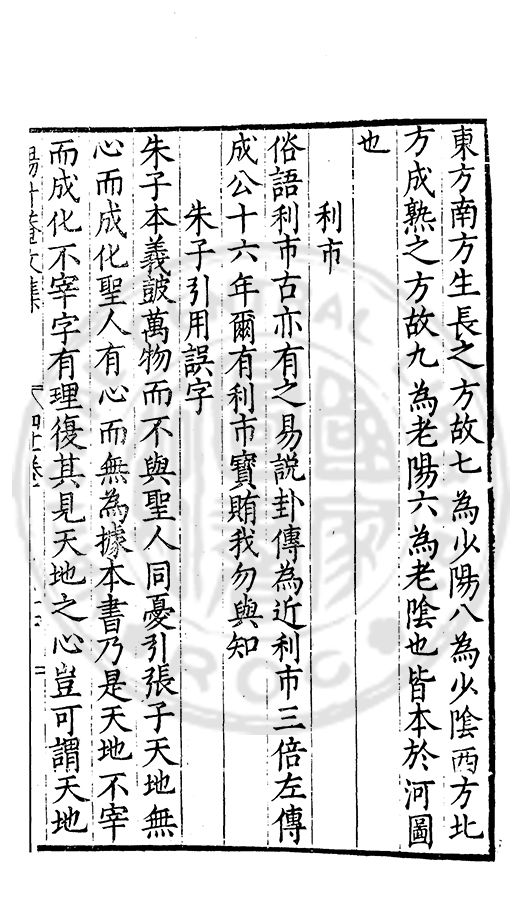 東方南方生長之方故七為少陽八為少陰西方北
方成熟之方故九為老陽六為老陰也皆本於河圖
也
利市
俗語利市古亦有之易說卦傳為近利市三倍左傳
成公十六年爾有利市寶賄我勿與知
朱子引用誤字
朱子本義鼓萬物而不與聖人同憂引張子天地無
心而成化聖人有心而無為據本書乃是天地不宰
而成化不宰字有理復其見天地之心豈可謂天地